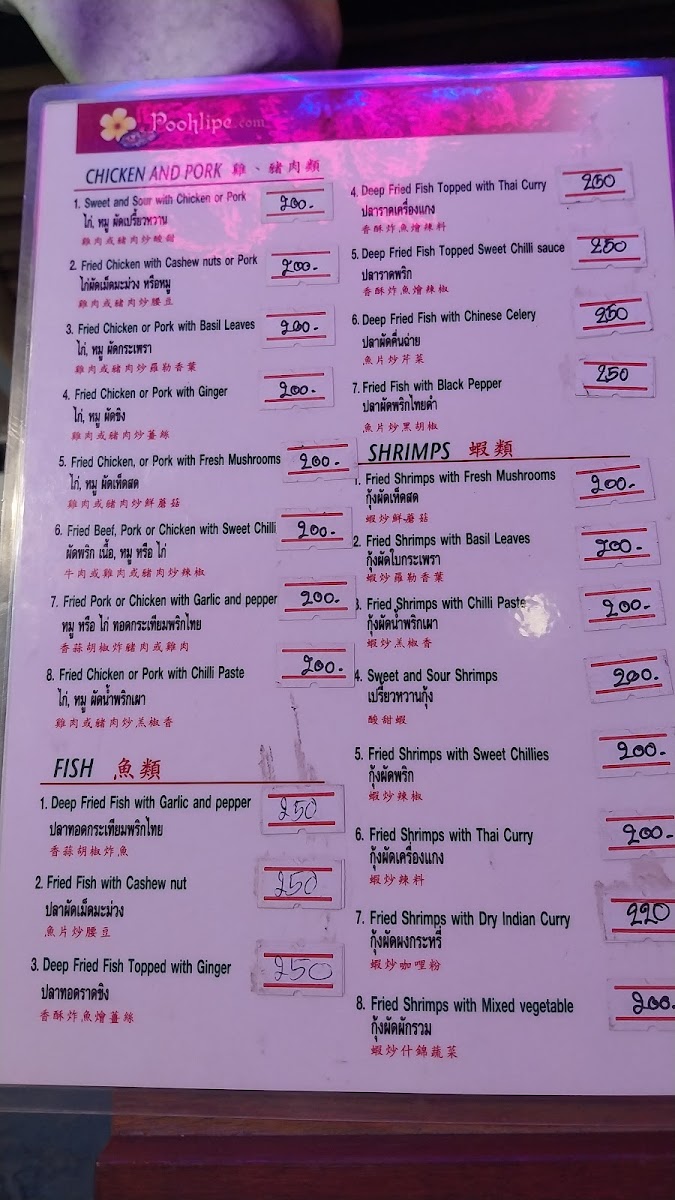 Poohlipe.com
CHICKEN AND PORK 雞、豬肉類
1. Sweet and Sour with Chicken or Pork 200.-
ไก่, หมู ผัดเปรี้ยวหวาน
雞肉或豬肉炒酸甜
2. Fried Chicken with Cashew nuts or Pork 200.-
ไก่ผัดเม็ดมะม่วง หรือหมู
雞肉或豬肉炒腰豆
3. Fried Chicken or Pork with Basil Leaves 200.-
ไก่, หมู ผัดกระเพรา
雞肉或豬肉炒羅勒香葉
4. Fried Chicken or Pork with Ginger 200.-
ไก่, หมู ผัดขิง
雞肉或豬肉炒薑絲
5. Fried Chicken, or Pork with Fresh Mushrooms 200.-
ไก่, หมู ผัดเห็ดสด
雞肉或豬肉炒鮮蘑菇
6. Fried Beef, Pork or Chicken with Sweet Chilli 200.-
ผัดพริก เนื้อ, หมู หรือ ไก่
牛肉或雞肉或豬肉炒辣椒
7. Fried Pork or Chicken with Garlic and pepper 200.-
หมู หรือ ไก่ ทอดกระเทียมพริกไทย
香蒜胡椒炸豬肉或雞肉
8. Fried Chicken or Pork with Chilli Paste 200.-
ไก่, หมู ผัดน้ำพริกเผา
雞肉或豬肉炒羔椒香
FISH 魚類
1. Deep Fried Fish with Garlic and pepper 250
ปลาทอดกระเทียมพริกไทย
香蒜胡椒炸魚
2. Fried Fish with Cashew nut 250
ปลาผัดเม็ดมะม่วง
魚片炒腰豆
3. Deep Fried Fish Topped with Ginger 250
ปลาทอดราดขิง
香酥炸魚燴薑絲
4. Deep Fried Fish Topped with Thai Curry 250
ปลาราดเครื่องแกง
香酥炸魚燴辣料
5. Deep Fried Fish Topped Sweet Chilli sauce 250
ปลาราดพริก
香酥炸魚燴辣椒
6. Deep Fried Fish with Chinese Celery 250
ปลาผัดคื่นฉ่าย
魚片炒芹菜
7. Fried Fish with Black Pepper 250
ปลาผัดพริกไทยดำ
魚片炒黑胡椒
SHRIMPS 蝦類
1. Fried Shrimps with Fresh Mushrooms 200.-
กุ้งผัดเห็ดสด
蝦炒鮮蘑菇
2. Fried Shrimps with Basil Leaves 200.-
กุ้งผัดใบกระเพรา
蝦炒羅勒香葉
3. Fried Shrimps with Chilli Paste 200.-
กุ้งผัดน้ำพริกเผา
蝦炒羔椒香
4. Sweet and Sour Shrimps 200.-
เปรี้ยวหวานกุ้ง
酸甜蝦
5. Fried Shrimps with Sweet Chillies 200.-
กุ้งผัดพริก
蝦炒辣椒
6. Fried Shrimps with Thai Curry 200.-
กุ้งผัดเครื่องแกง
蝦炒辣料
7. Fried Shrimps with Dry Indian Curry 220
กุ้งผัดผงกระหรี่
蝦炒咖哩粉
8. Fried Shrimps with Mixed vegetable 200.
กุ้งผัดผักรวม
蝦炒什錦蔬菜